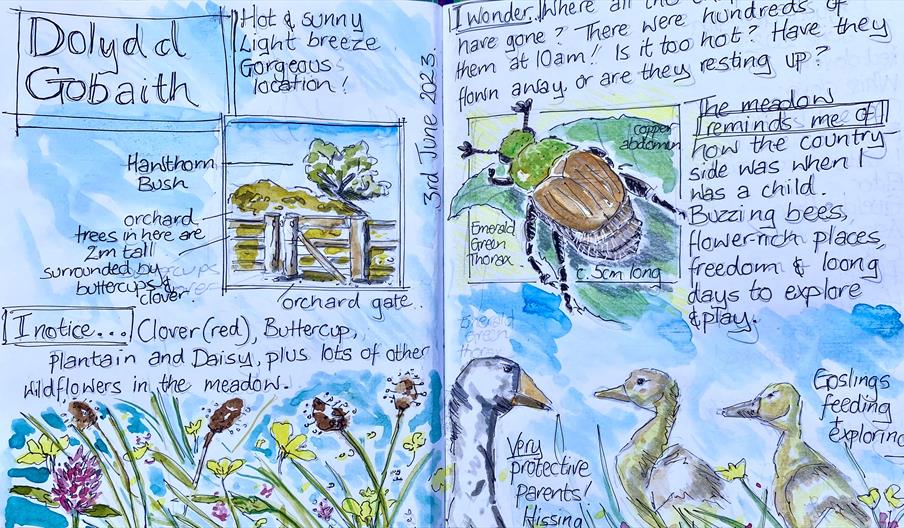 Dolydd
Gobaith
Hot & sunny
Light breeze
Gorgeous
location!
3rd June 2023.
Hawthorn
Bush
orchard
trees in here are
2m tall
surrounded by
buttercups &
clover.
orchard gate.
I notice... Clover (red), Buttercup,
plantain and Daisy, plus lots of other
wildflowers in the meadow.
I wonder.. Where all the
have gone? There were hundreds of
them at 10am! Is it too hot? Have they
flown away or are they resting up?
copper
abdomen
Emerald
Green
Thorax
c. 5cm long
The meadow
reminds me of
how the country
side was when I
was a child.
Buzzing bees,
flower-rich places,
freedom & loong
days to explore
& play.
Very
protective
parents!
Hissing
Goslings
feeding
+ exploring